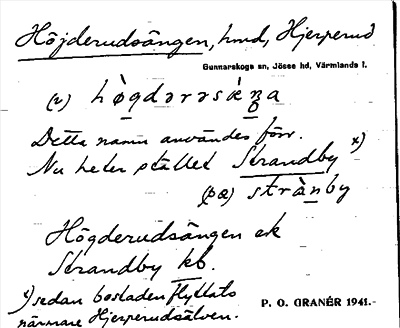 Höjderudsängen, hmd, Hjerperud
Gunnarskogs sn, Jösse hd, Värmlands l.
(r) hø̀gdərəsǽŋa
Detta namn användes förr.
Nu heter stället Strandby x)
(på) strànby
Högderudsängen ek
Strandby kb.
x) sedan bostaden flyttats
närmare Hjerperudsälven.
P. O. GRANÉR 1941.-